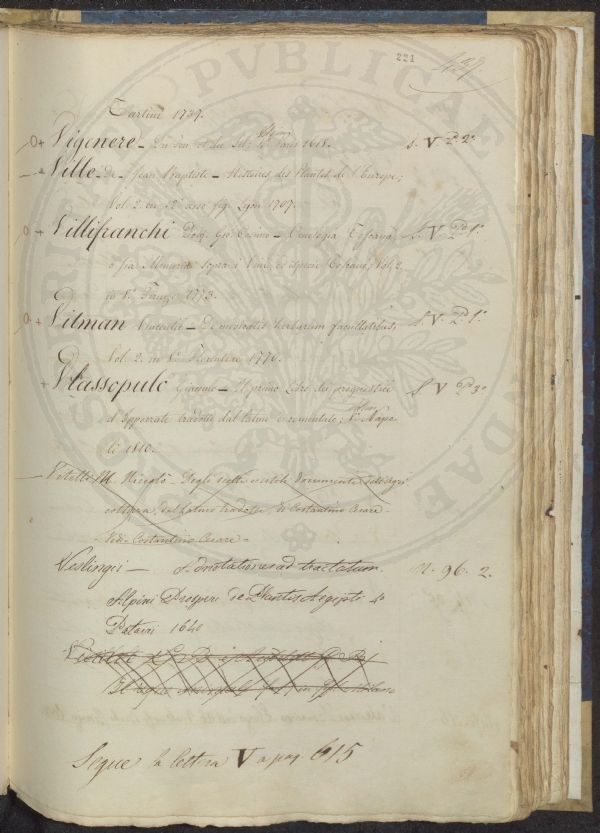 221
Tartini 1739.
O + Vigenere _ Du feu, et du Sel; Paris 1618. S. V. P. 2.º
+ Ville _ De _ Jean Baptiste _ Histoires des Plantes de l'Europe;
Vol. 2. in 12º fig. Lyon 1707.
O + Villifranchi Gio. Cosimo _ Oenologia Toscana S. V. P. 1º
o sia Memoria Sopra i Vini, Toscani; Vol. 2.
in 8.º Firenze 1773.
O + Vitman _ De medicatis herbarum facultatibus; S. V. P. 1º
Vol. 2. in 8.º 1770.
+ Vlassopulo Giacomo _ Il primo Libro dei prognostici S. V 3º
d'Ippocrate tradotto dal latino e comentato; 8.º Napo
li 1810.
Vitelli M. Niccolò _ Degli
dal Latino tradotto, di Costantino Cesare _
Vedi _ Costantino Cesare _
Veslingii _ Adnotationes ad tractatum M. 96. 2.
Alpini Prosperi de Plantis Aegipti 4º
Patavi 1640
Segue la lettera V a pag 615